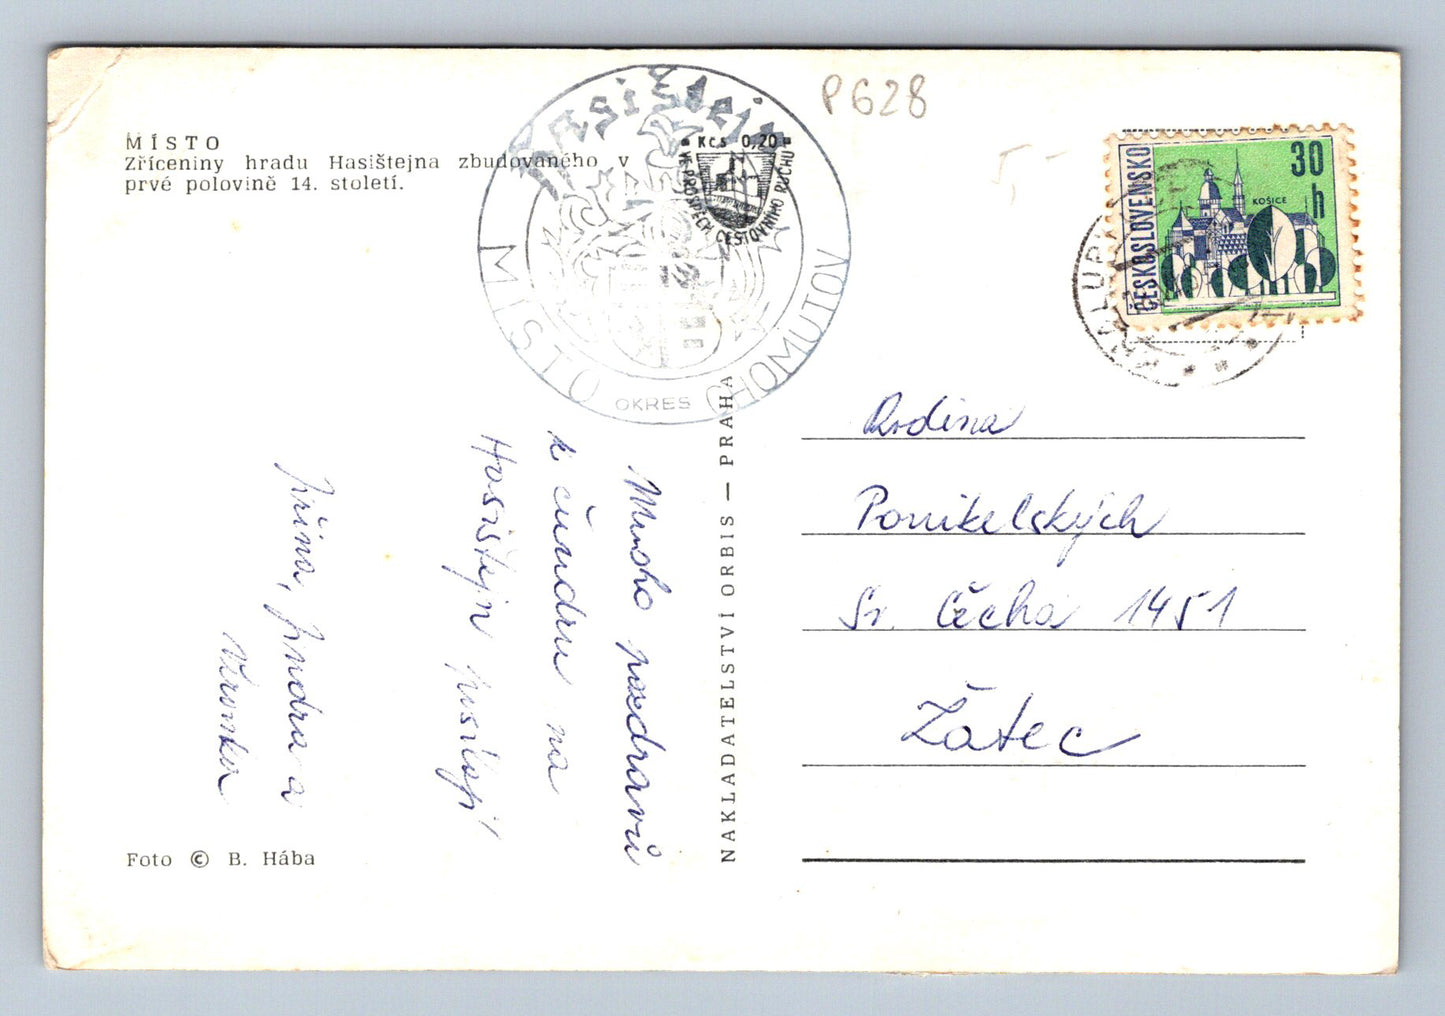 MÍSTO
Zříceniny hradu Hasištejna zbudovaného v
prvé polovině 14. století.
Hasištejn
MÍSTO OKRES CHOMUTOV
Kčs 0,20
VE PROSPĚCH CESTOVNÍHO RUCHU
P628
ČESKOSLOVENSKO
30
h
KOŠICE
Mnoho pozdravů
z čundru na
Hasištejn posílají
Jiřina, Jindra a
Veronika
NAKLADATELSTVÍ ORBIS — PRAHA
Rodina
Ponikelských
Sv. Čecha 1451
Žatec
Foto © B. Hába